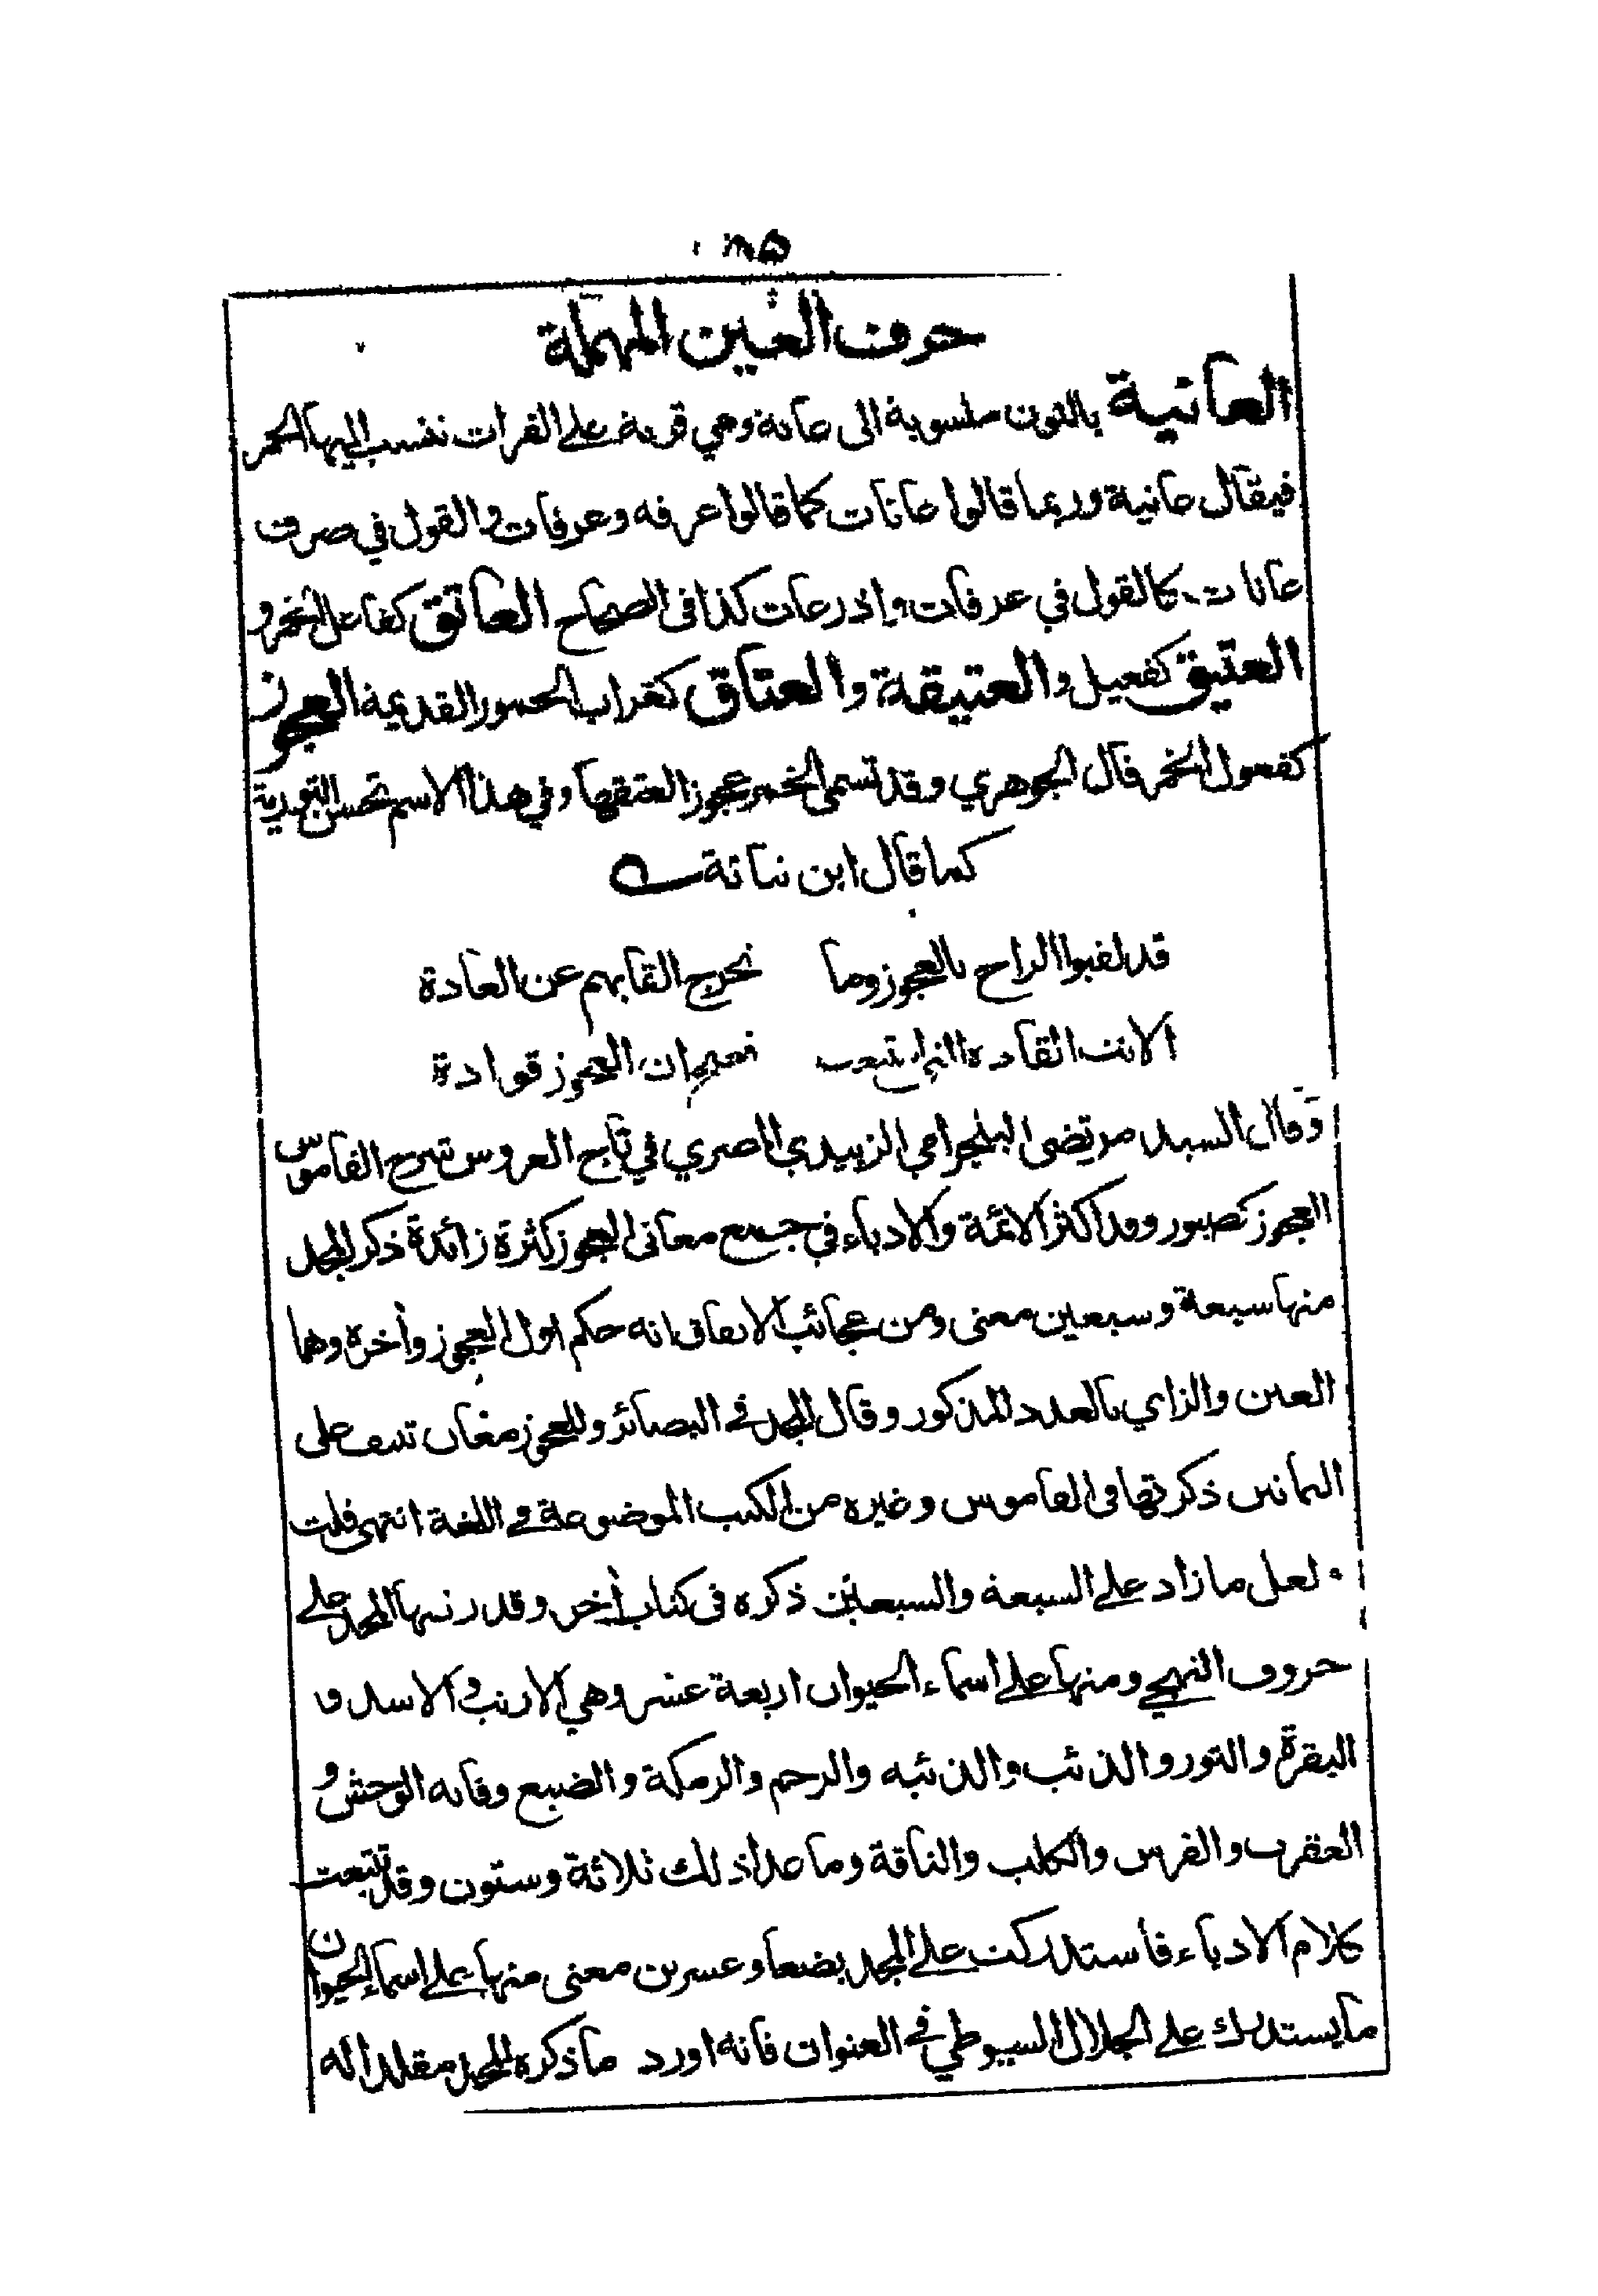 حرف العين المهملة
العانية بالنون منسوبة الى عانة وهي قرية على الفرات تنسب اليها الخمر
فيقال عانية وربما قالوا عانات كما قالوا عرفه وعرفات والقول في صرف
عانات كالقول في عرفات واذرعات كذا في الصحاح العاتق كفاعل الخمر و
العتيق كفعيل والعتيقة والعتاق كغراب الخمور القديمة العجوز
كفعول الخمر قال الجوهري وقد تسمى الخمر عجوزا لعتقها وفي هذا الاسم تحسن التورية
كما قال ابن نباتة
قد لقبوا الراح بالعجوز وما تخرج القابهم عن العادة
الانت القادة التي تعب ان العجوز قوادة
وقال السيد مرتضى البلجرامي الزبيدي المصري في تاج العروس شرح القاموس
العجوز كصبور وقد اكثر الائمة والادباء في جمع معاني العجوز كثرة زائدة ذكر المجد
منها سبعة وسبعين معنى ومن عجائب الاتفاق انه حكم اول العجوز وأخره وهما
العين والزاي بالعدد المذكور وقال المجد في البصائر وللعجوز معان تنيف على
الثمانين ذكرتها في القاموس وغيره من الكتب الموضوعة في اللغة انتهى قلت
لعل ما زاد على السبعة والسبعين ذكره في كتاب أخر وقد رتبها المجد على
حروف التهجي ومنها على اسماء الحيوان اربعة عشر وهي الارنب والاسد و
البقرة والثور والذئب والذئبه والرخم والرمكة والضبع وعانه الوحش و
العقرب والفرس والكلب والناقة وما عدا ذلك ثلاثة وستون وقد تتبعت
كلام الادباء فأستدركت على المجد بضعا وعشرين معنى منها على اسماء الحيوان
ما يستدرك على الجلال السيوطي في العنوان فانه اورد ما ذكره المجد مقلدا له